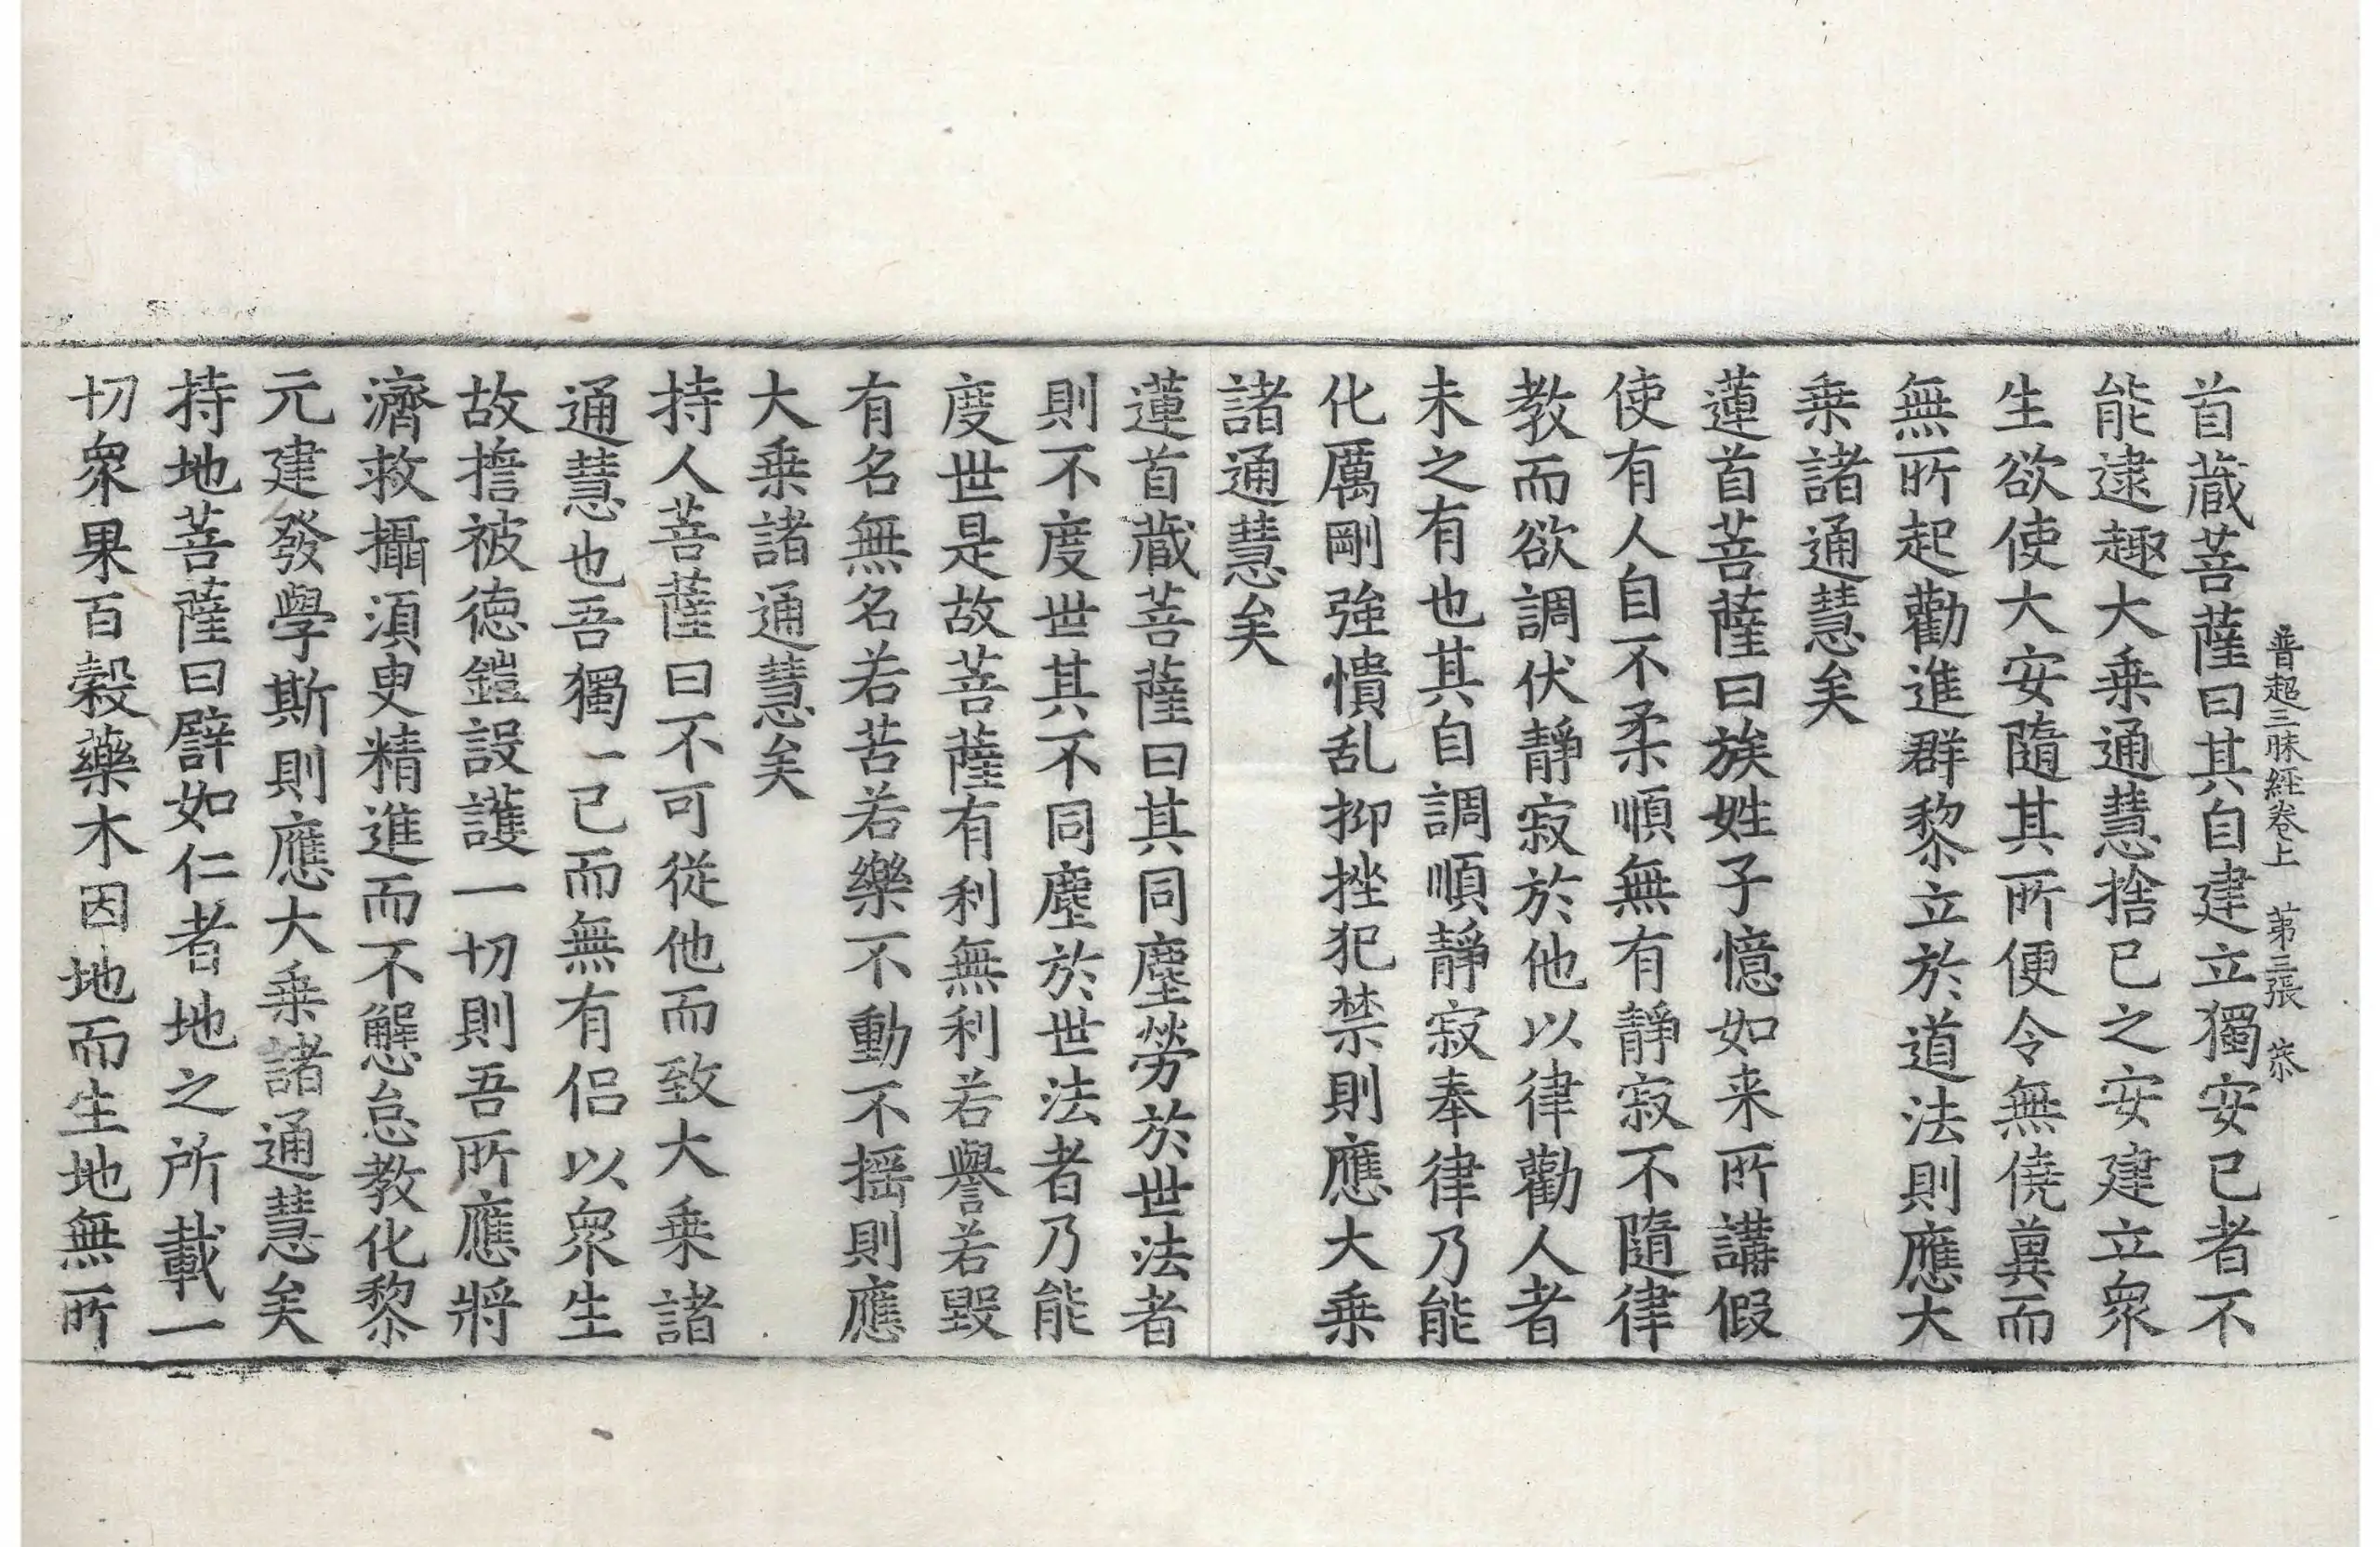 普超三昧經卷上　第三張　恭
首蔵菩薩曰其自建立獨安已者不
能逮趣大乗通慧捨已之安建立衆
生欲使大安隨其所便令無僥兾而
無所起勸進群黎立於道法則應大
乗諸通慧矣
蓮首菩薩曰族姓子憶如来所講假
使有人自不柔順無有靜寂不隨律
教而欲調伏靜寂於他以律勸人者
未之有也其自調順靜寂奉律乃能
化厲剛強憒乱抑挫犯禁則應大乗
諸通慧矣
蓮首蔵菩薩曰其同塵勞於世法者
則不度世其不同塵於世法者乃能
度世是故菩薩有利無利若譽若毀
有名無名若苦若樂不動不揺則應
大乗諸通慧矣
持人菩薩曰不可從他而致大乗諸
通慧也吾獨一己而無有侣以衆生
故擔被徳鎧設護一切則吾所應將
濟救攝湏臾精進而不懈怠教化黎
元建發學斯則應大乗諸通慧矣
持地菩薩曰譬如仁者地之所載一
切衆果百穀藥木因地而生地無所